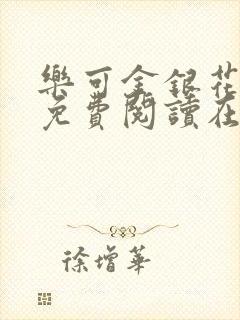 樂可金銀花
免費閱讀在
徐增華